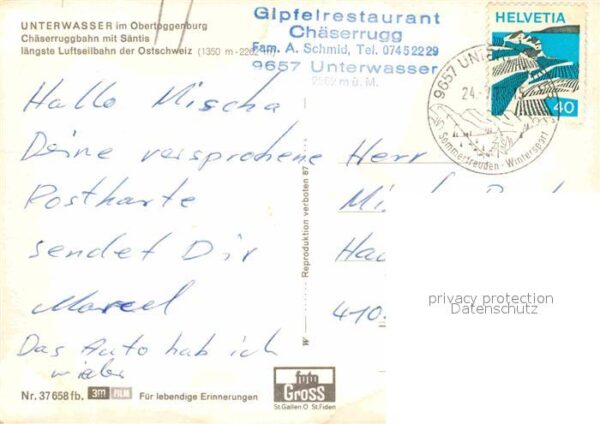 UNTERWASSER im Obertoggenburg
Chäserruggbahn mit Säntis
längste Luftseilbahn der Ostschweiz (1350 m - 2262 m)
Gipfelrestaurant
Chäserrugg
Fam. A. Schmid, Tel. 074 5 22 29
9657 Unterwasser
2262 m ü. M.
HELVETIA
40
9657 UNTERWASSER
24.
Sommerfreuden · Wintersport
Hallo Mischa
Deine versprochene
Postkarte
sendet Dir
Marcel
Das Auto hab ich
wieder
Herr
Mi
410
Reproduktion verboten 87
W
privacy protection
Datenschutz
Nr. 37658 fb. 3m FILM Für lebendige Erinnerungen
foto
Gross
St.Gallen O St.Fiden